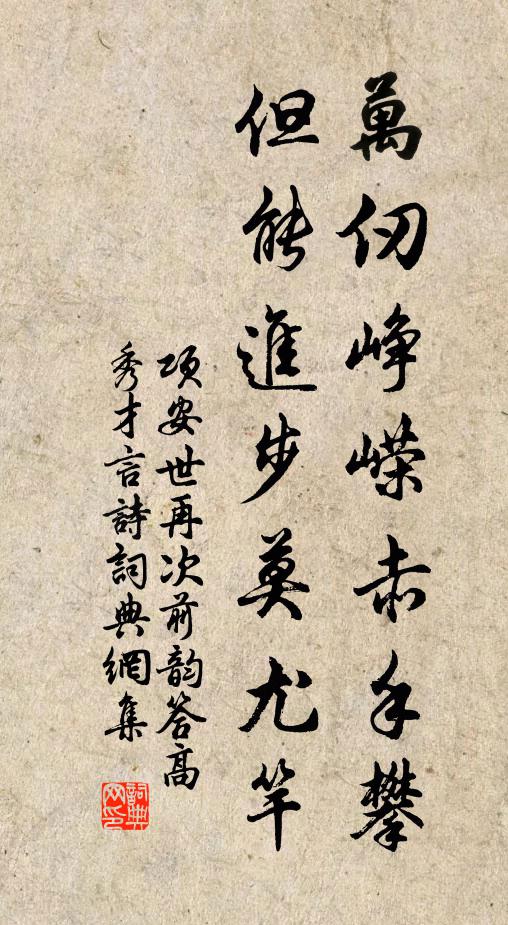 萬仞峥嶸赤手攀
但能進步莫尤竿
項安世再次前韵答高
秀才言詩詞典網集
詞典
网印